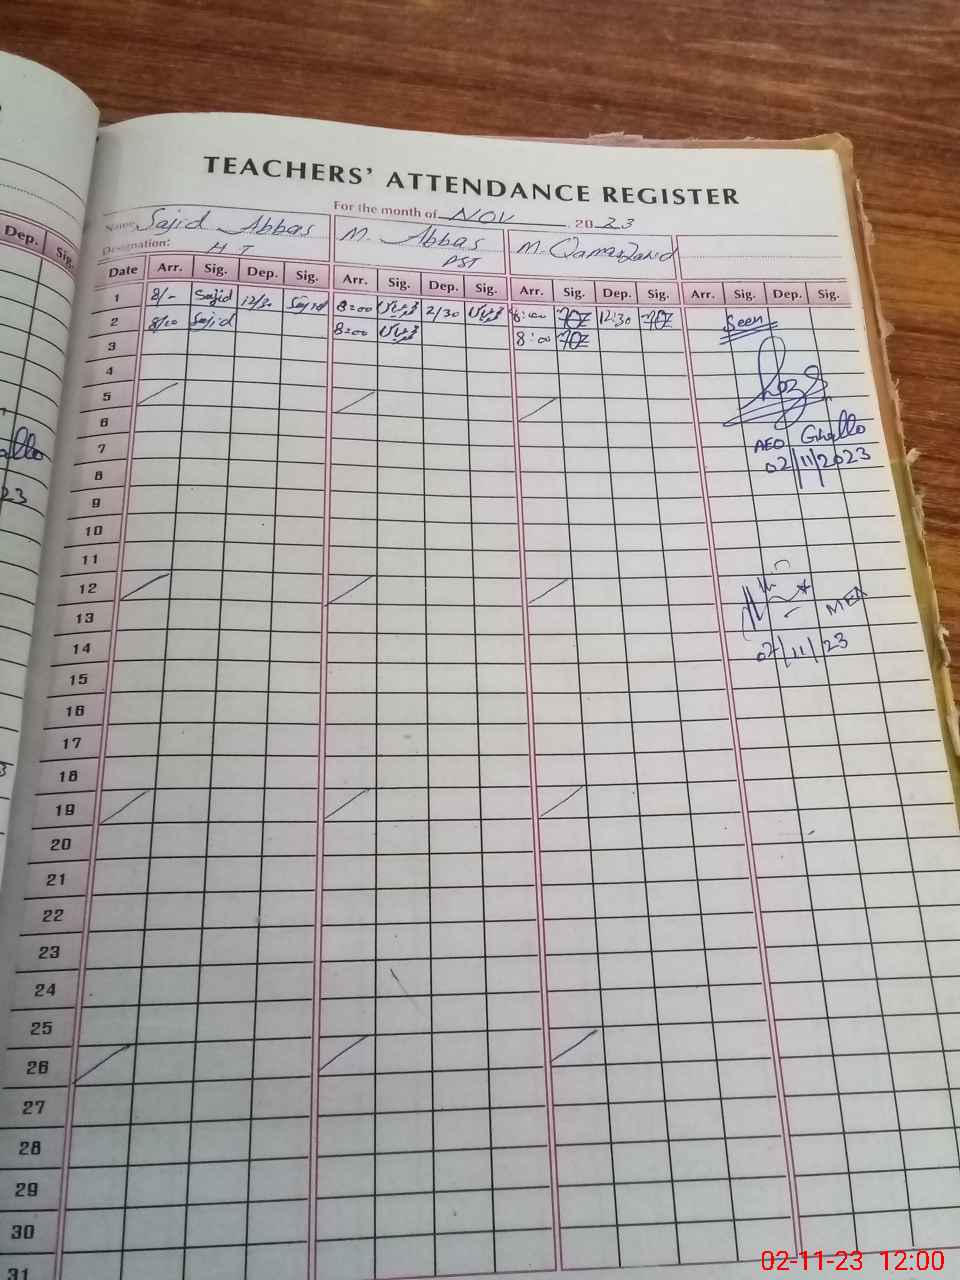 TEACHERS' ATTENDANCE REGISTER
For the month of NOV 2023
Name Sajid Abbas M. Abbas M. Qamar Zahid
Designation: H T PST
Dep. Sig.
Date Arr. Sig. Dep. Sig. Arr. Sig. Dep. Sig. Arr. Sig. Dep. Sig. Arr. Sig. Dep. Sig.
1 8/- Sajid 12/30 Sajid 8:00 2/30 8:00 MQZ 12:30 MQZ
2 8/00 Sajid 8:00 8:00 MQZ Seen
3
4
5
6
7 AEO Ghallo
8 02/11/2023
9
10
11
12
13 MEA
14 02/11/23
15
16
17
18
19
20
21
22
23
24
25
26
27
28
29
30
31
23
02-11-23 12:00